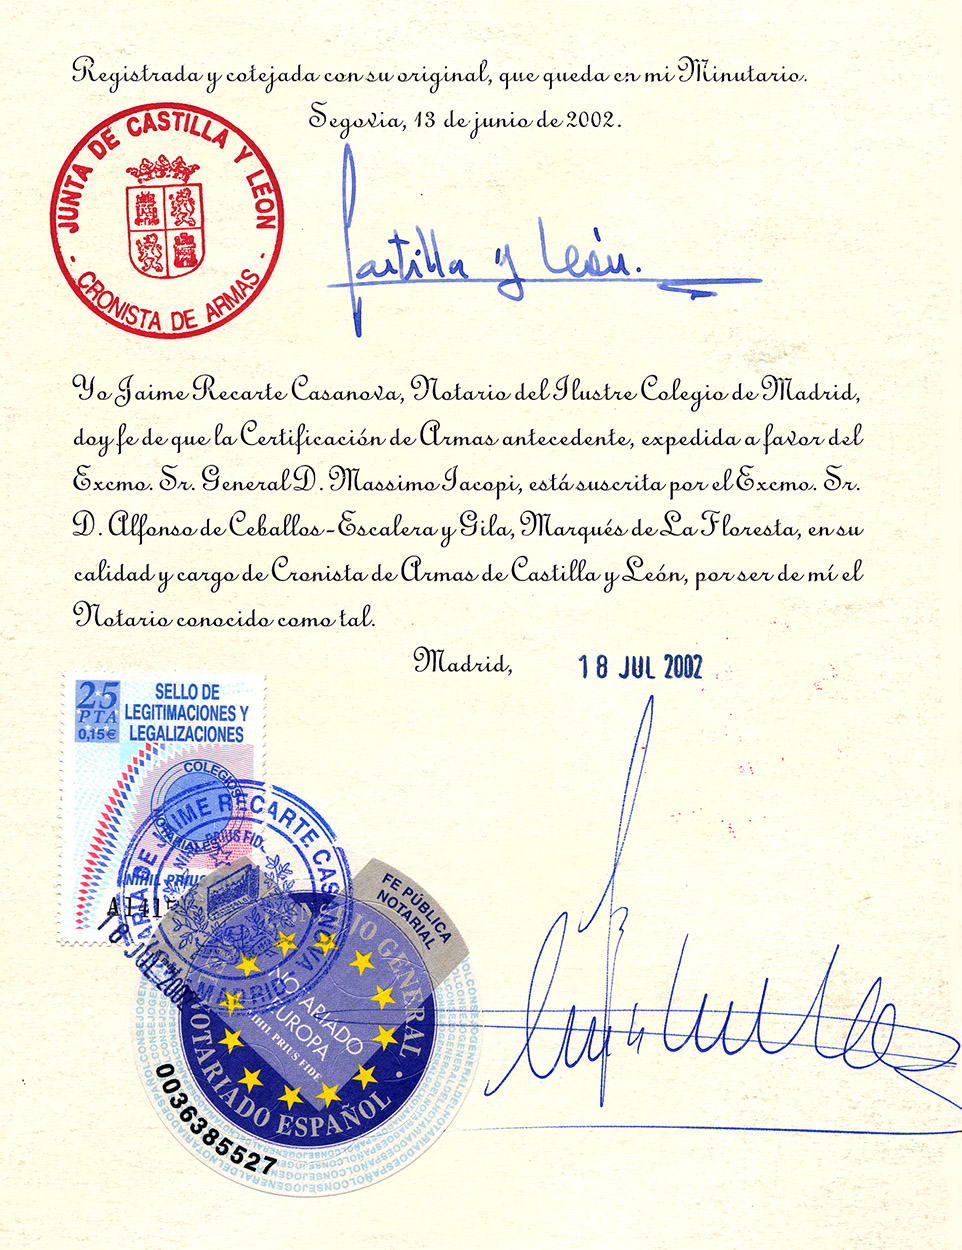 Registrada y cotejada con su original, que queda en mi Minutario.
Segovia, 13 de junio de 2002.
JUNTA DE CASTILLA Y LEÓN
- CRONISTA DE ARMAS -
Castilla y León.
Yo Jaime Recarte Casanova, Notario del Ilustre Colegio de Madrid,
doy fe de que la Certificación de Armas antecedente, expedida a favor del
Excmo. Sr. General D. Massimo Iacopi, está suscrita por el Excmo. Sr.
D. Alfonso de Ceballos-Escalera y Gila, Marqués de La Floresta, en su
calidad y cargo de Cronista de Armas de Castilla y León, por ser de mí el
Notario conocido como tal.
Madrid, 18 JUL 2002
25
PTA
0,15€
SELLO DE
LEGITIMACIONES Y
LEGALIZACIONES
COLEGIOS
NOTARIALES
NIHIL PRIUS
JAIME RECARTE CASANOVA
MADRID
18 JUL 2002
FE PÚBLICA
NOTARIAL
GENERAL
EUROPA
NIHIL PRIUS FIDE
NOTARIADO ESPAÑOL
0036385527